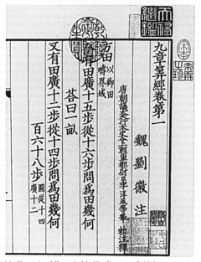 九章筭經卷第一
魏劉徽注
唐朝議大夫行太史令上輕車都尉臣李淳風等奉敕注釋
方田以御田疇界域
今有田廣十五步從十六步問爲田幾何
荅曰一畝
又有田廣十二步從十四步問爲田幾何
百六十八步圖從十四廣十